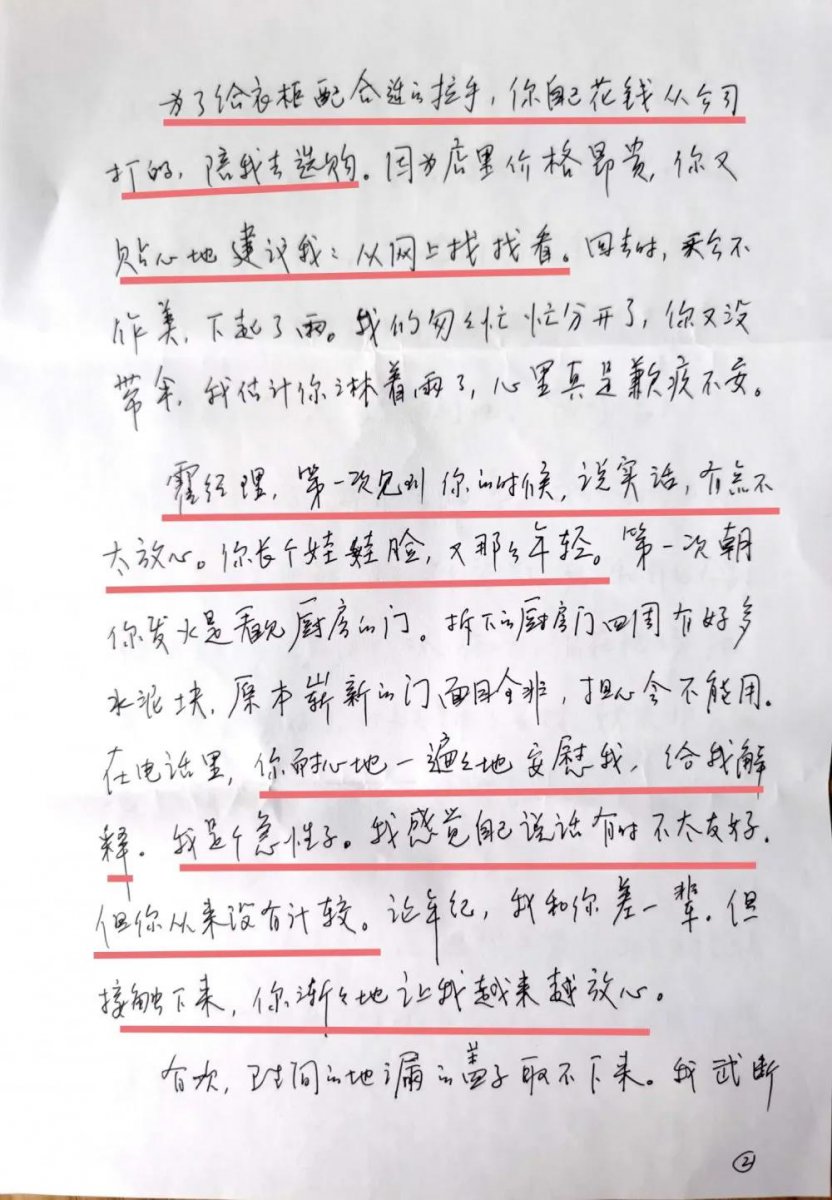 为了给衣柜配合适的拉手，你自己花钱从公司
打的，陪我去选购。因为店里价格昂贵，你又
贴心地建议我：从网上找找看。回去时，天公不
作美，下起了雨。我们匆匆忙忙分开了，你又没
带伞，我估计你淋着雨了，心里真是歉疚不安。
霍经理，第一次见到你的时候，说实话，有点不
太放心。你长个娃娃脸，又那么年轻。第一次朝
你发火是看见厨房的门。拆下的厨房门四周有好多
水泥块，原本崭新的门面目全非，担心会不能用。
在电话里，你耐心地一遍遍地安慰我，给我解
释。我是个急性子。我感觉自己说话有时不太友好，
但你从来没有计较。论年纪，我和你差一辈。但
接触下来，你渐渐地让我越来越放心。
有次，卫生间的地漏的盖子取不下来。我武断
②